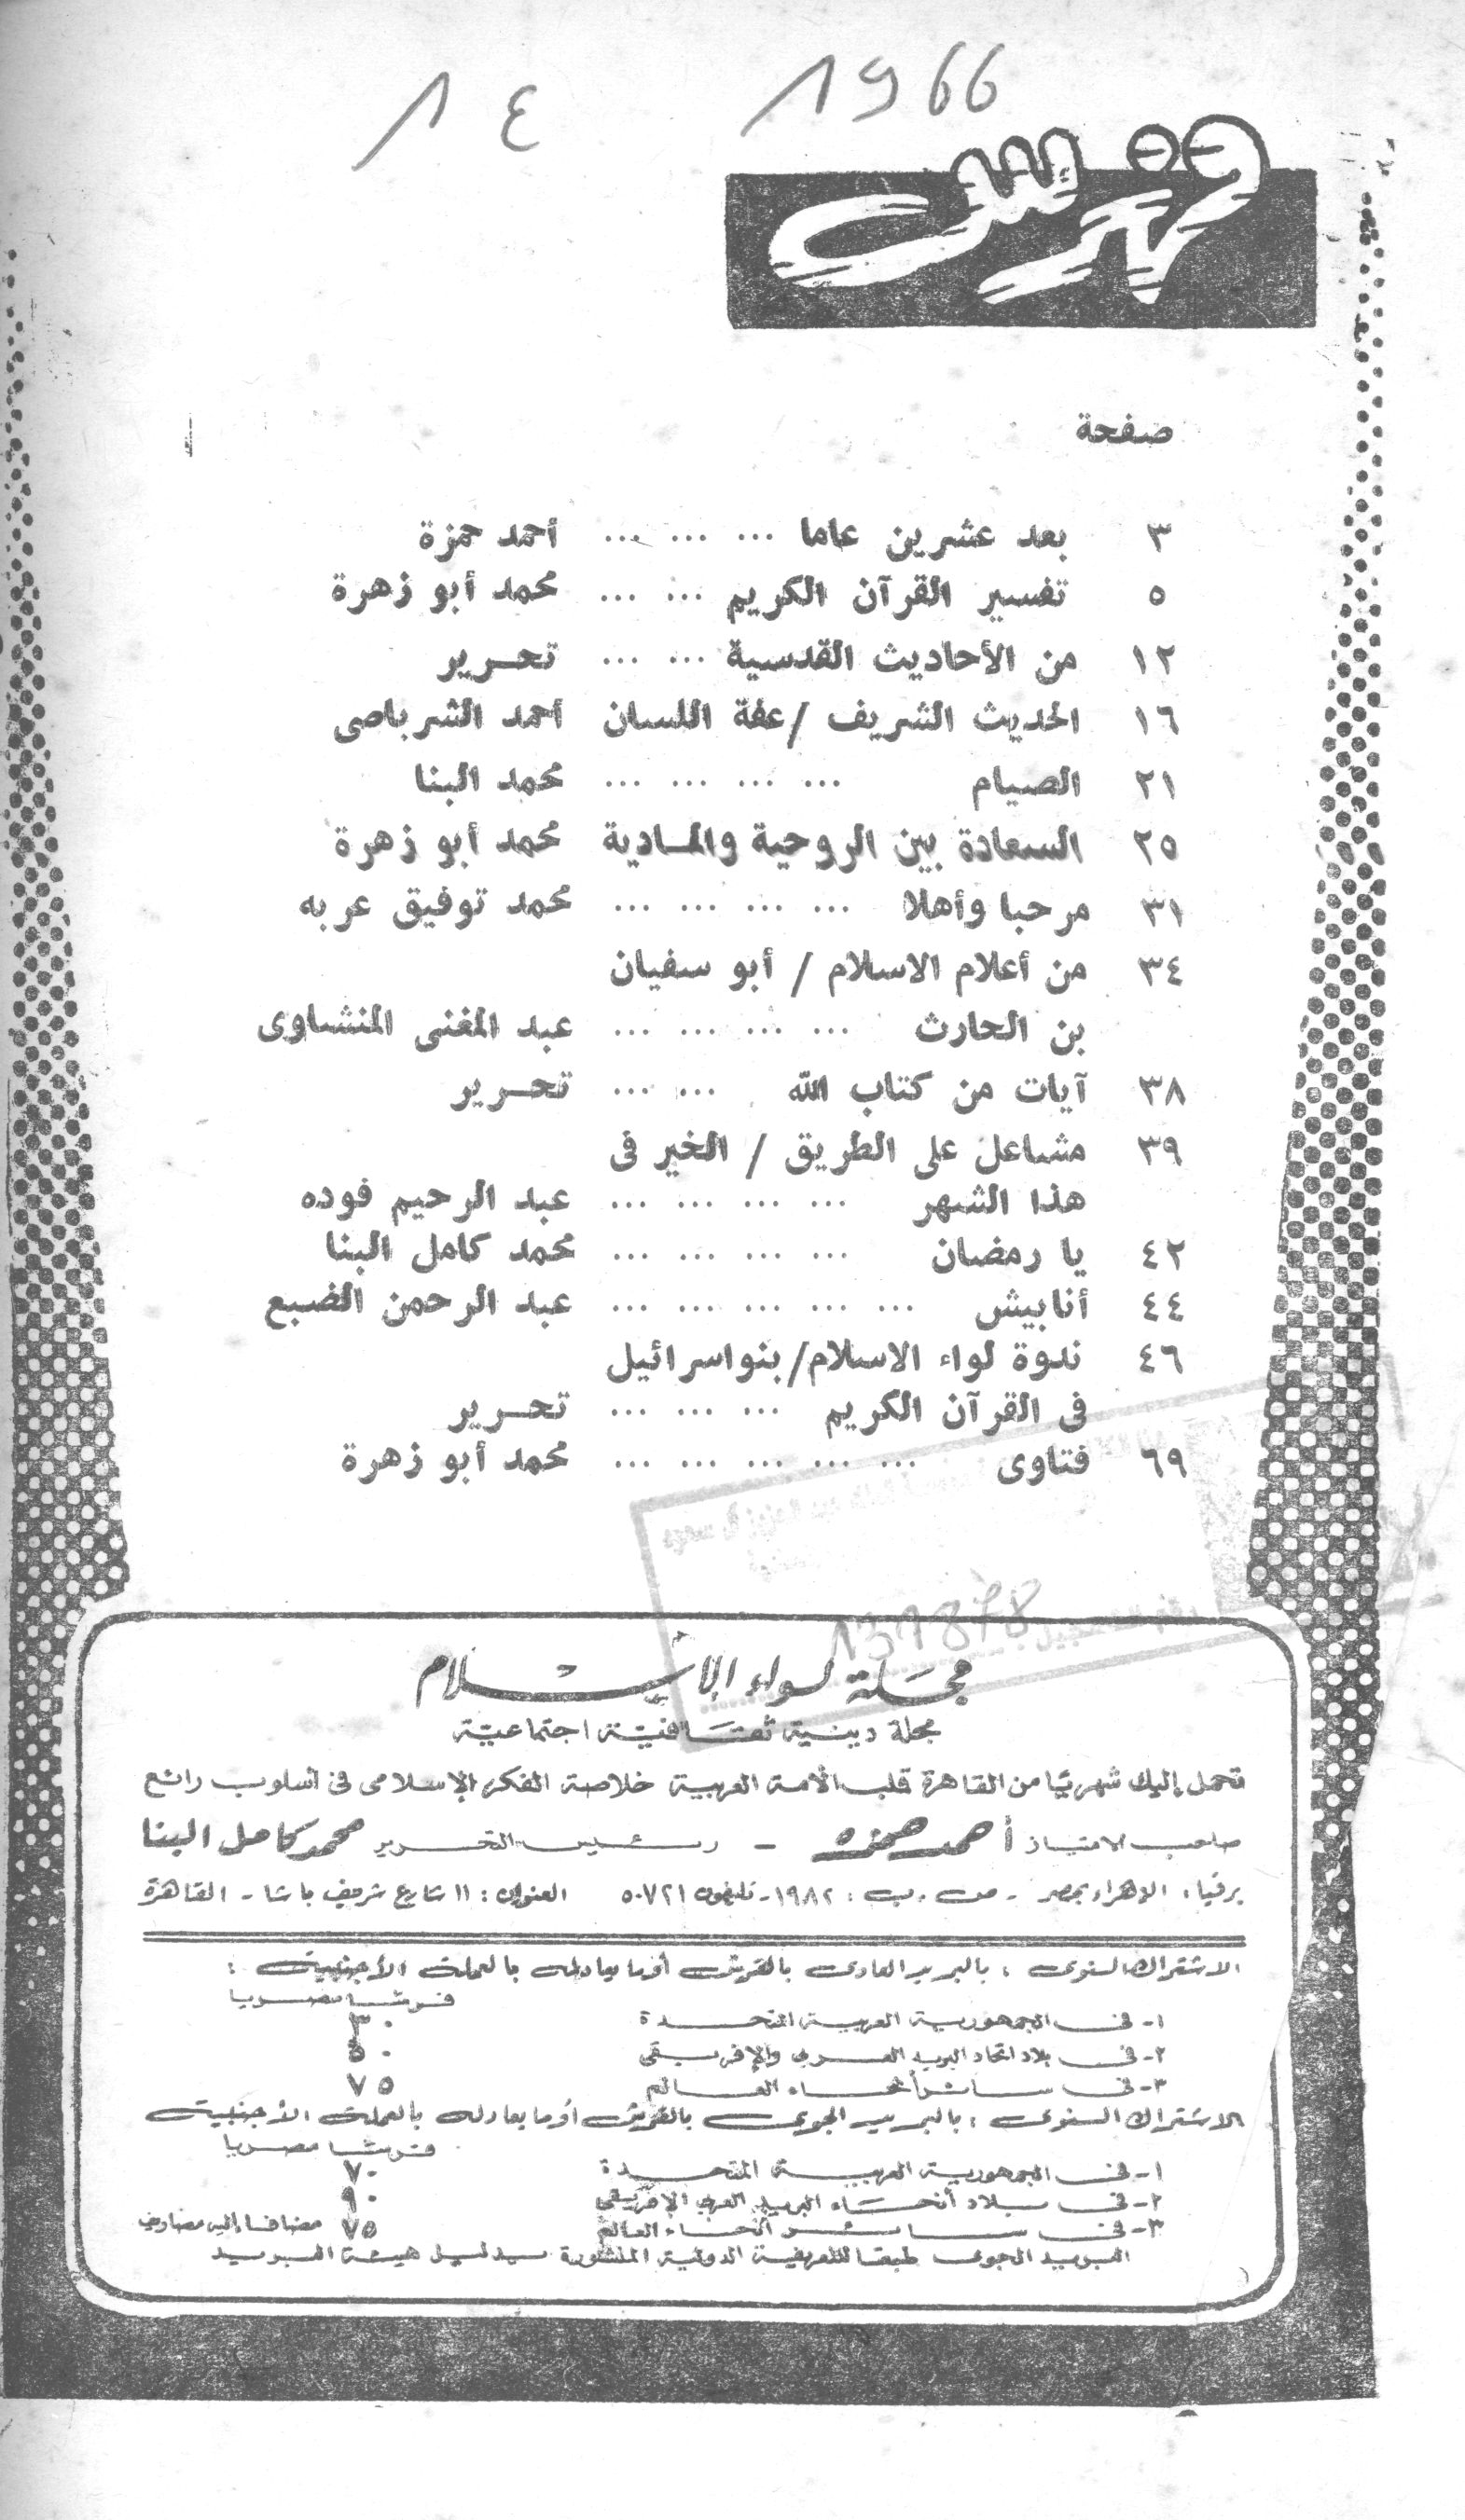 1966
١٤
فهرس
صفحة
٣ بعد عشرين عاما ... ... ... أحمد حمزة
٥ تفسير القرآن الكريم ... ... محمد أبو زهرة
١٢ من الأحاديث القدسية ... ... تحرير
١٦ الحديث الشريف / عفة اللسان أحمد الشرباصى
٢١ الصيام ... ... ... ... محمد البنا
٢٥ السعادة بين الروحية والمادية محمد أبو زهرة
٣١ مرحبا وأهلا ... ... ... ... محمد توفيق عربه
٣٤ من أعلام الاسلام / أبو سفيان
بن الحارث ... ... ... ... عبد المغنى المنشاوى
٣٨ آيات من كتاب الله ... ... تحرير
٣٩ مشاعل على الطريق / الخير فى
هذا الشهر ... ... ... ... عبد الرحيم فوده
٤٢ يا رمضان ... ... ... ... محمد كامل البنا
٤٤ أنابيش ... ... ... ... ... عبد الرحمن الضبع
٤٦ ندوة لواء الاسلام/ بنو اسرائيل
فى القرآن الكريم ... ... ... تحرير
٦٩ فتاوى ... ... ... ... ... محمد أبو زهرة
مجلة لواء الإسلام
مجلة دينية ثقافية اجتماعية
تحمل إليك شهريا من القاهرة قلب الأمة العربية خلاصة الفكر الإسلامى فى أسلوب رائع
صاحب الامتياز أحمد حمزه - رئيس التحرير محمد كامل البنا
برقيا: الاهراء بمصر - ص . ب : ١٩٨٢ - تليفون ٥٠٧٢١ العنوان : ١١ شارع شريف باشا - القاهرة
الاشتراك السنوى : بالبريد العادى بالقرش أو ما يعادله بالعملة الأجنبية :
قرشا مصريا
١- فى الجمهورية العربية المتحدة ٣٠
٢- فى بلاد اتحاد البريد العربى والإفريقى ٥٠
٣- فى سائر أنحاء العالم ٧٥
الاشتراك السنوى : بالبريد الجوى بالقرش أو ما يعادله بالعملة الأجنبية
قرشا مصريا
١- فى الجمهورية العربية المتحدة ٧٠
٢- فى بلاد أنحاء البريد العربى الإفريقى ٩٠
٣- فى سائر أنحاء العالم ٧٥ مضافا إليه مصاريف
البريد الجوى طبقا للتعريفة الدولية المنشورة بدليل هيئة البريد